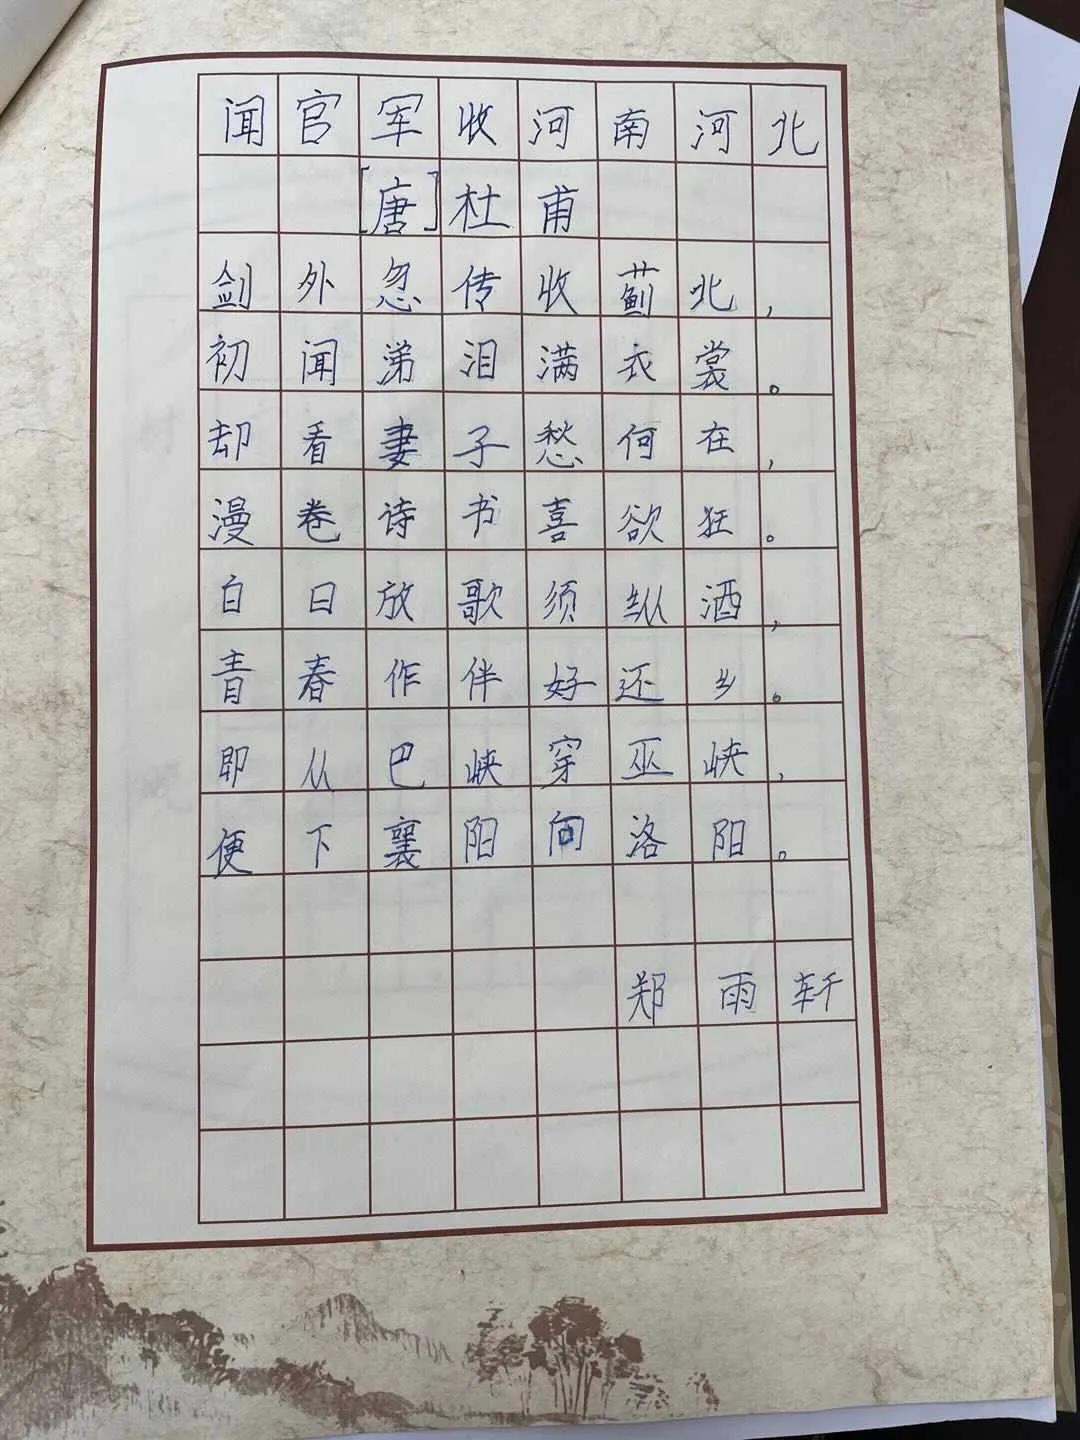 闻官军收河南河北
[唐]杜甫
剑外忽传收蓟北，
初闻涕泪满衣裳。
却看妻子愁何在，
漫卷诗书喜欲狂。
白日放歌须纵酒，
青春作伴好还乡。
即从巴峡穿巫峡，
便下襄阳向洛阳。
郑雨轩